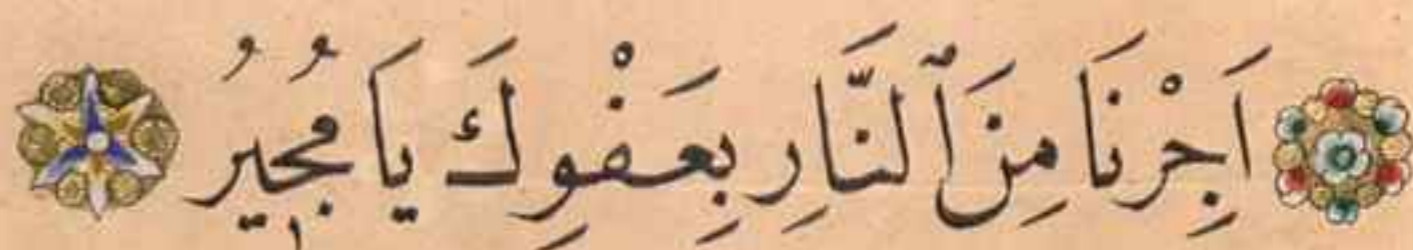 اَجِرْنَا مِنَ ٱلنَّارِ بِعَفْوِكَ يَا مُجِيرُ